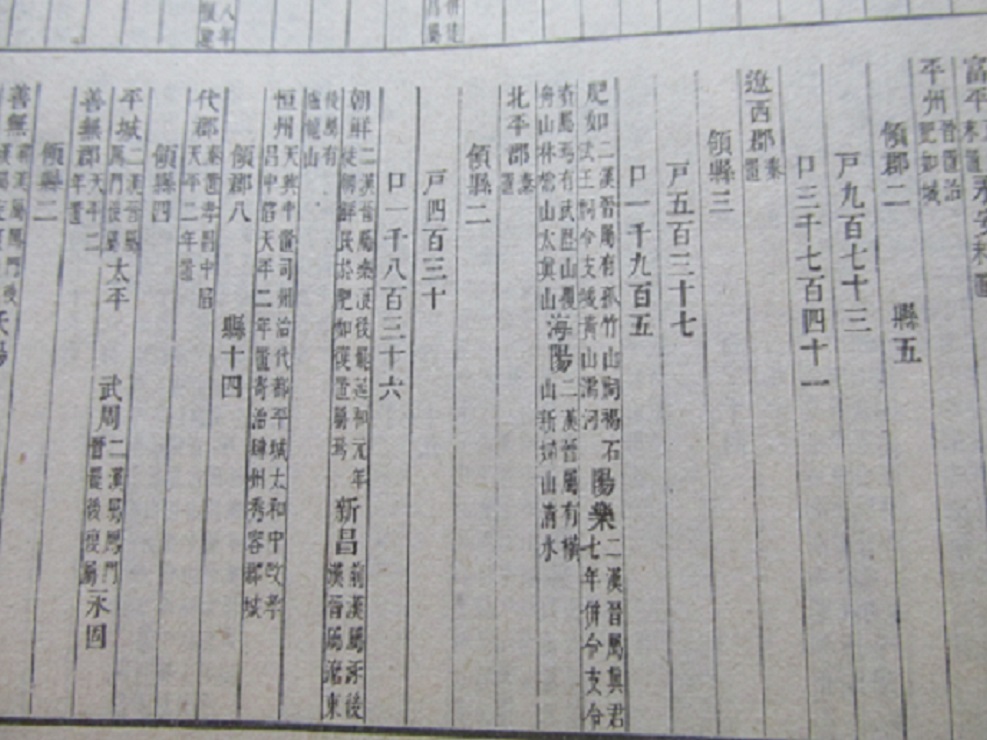 富平
平州晉置治肥如城
領郡二　縣五
戶九百七十三
口三千七百四十一
遼西郡秦置
領縣三
戶五百三十七
口一千九百五
肥如二漢晉屬有孤竹山祠碣石武王祠令支城黃山濡河　陽樂二漢晉屬真君七年併令支合
資屬焉有武歷山覆舟山林榆山太真山　海陽二漢晉屬有橫山新婦山清水
北平郡秦置
領縣二
戶四百三十
口一千八百三十六
朝鮮二漢晉屬樂浪後罷延和元年徙朝鮮民於肥如復置屬焉　新昌前漢屬涿後漢晉屬遼東
後屬有盧龍山
恒州天興中置司州治代都平城太和中改孝昌中陷天平二年置寄治肆州秀容郡城
領郡八　縣十四
代郡秦置孝昌中陷天平二年置
領縣四
平城二漢晉屬鴈門後屬　太平　武周二漢屬鴈門晉罷後復屬　永固
善無郡天平二年置
領縣二
善無